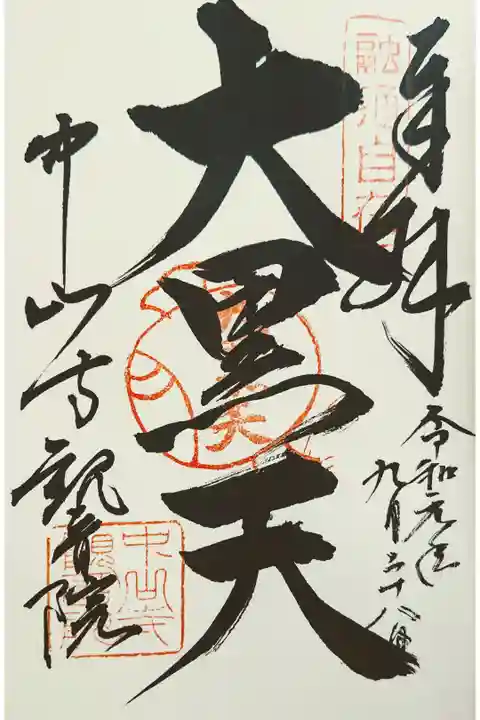 奉拝
令和元年
九月二十八日
大黒天
中山寺観音院
融通自在
中山寺